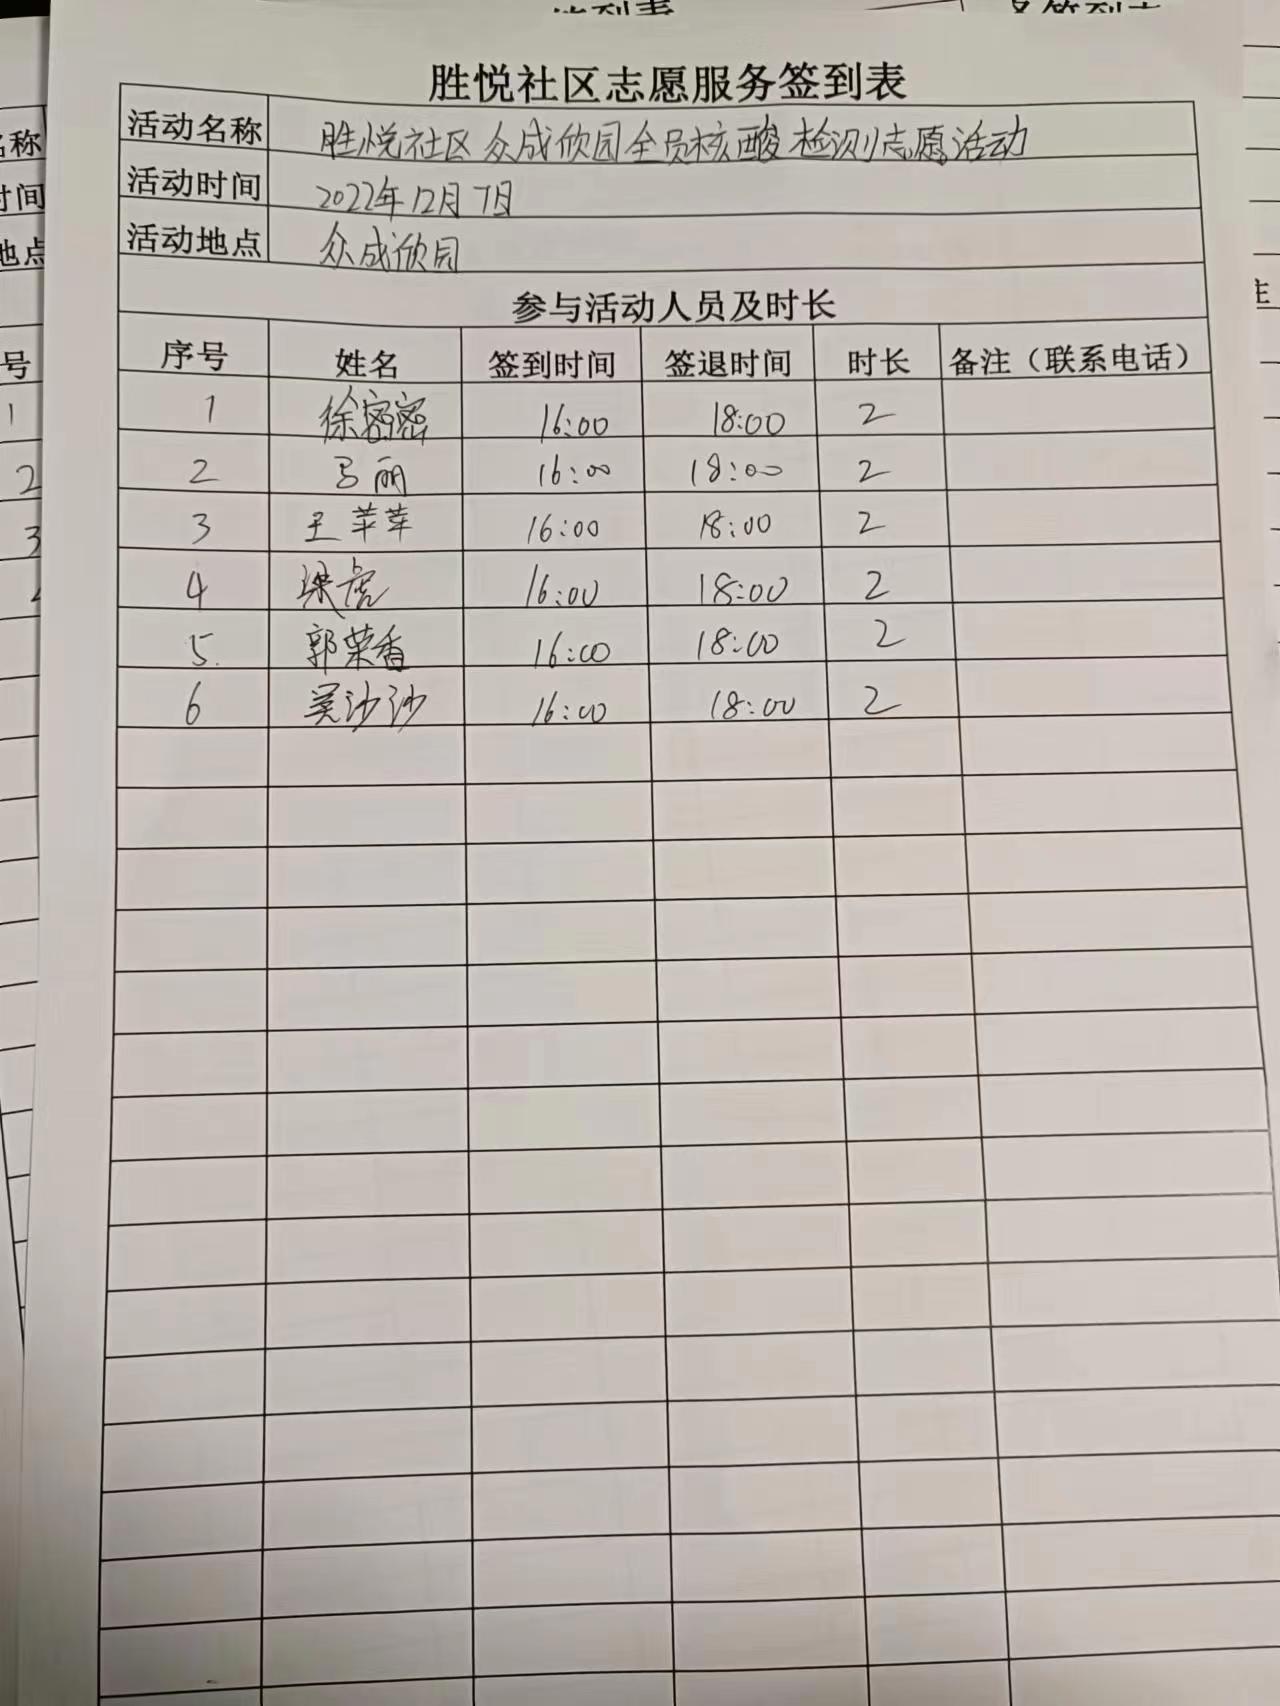 胜悦社区志愿服务签到表
活动名称 胜悦社区众成欣园全员核酸检测志愿活动
活动时间 2022年12月7日
活动地点 众成欣园
参与活动人员及时长
序号 姓名 签到时间 签退时间 时长 备注（联系电话）
1 徐密密 16:00 18:00 2
2 马丽 16:00 18:00 2
3 王苹苹 16:00 18:00 2
4 16:00 18:00 2
5. 郭荣香 16:00 18:00 2
6 吴沙沙 16:00 18:00 2
名称
时间
地点
号
1
2
3